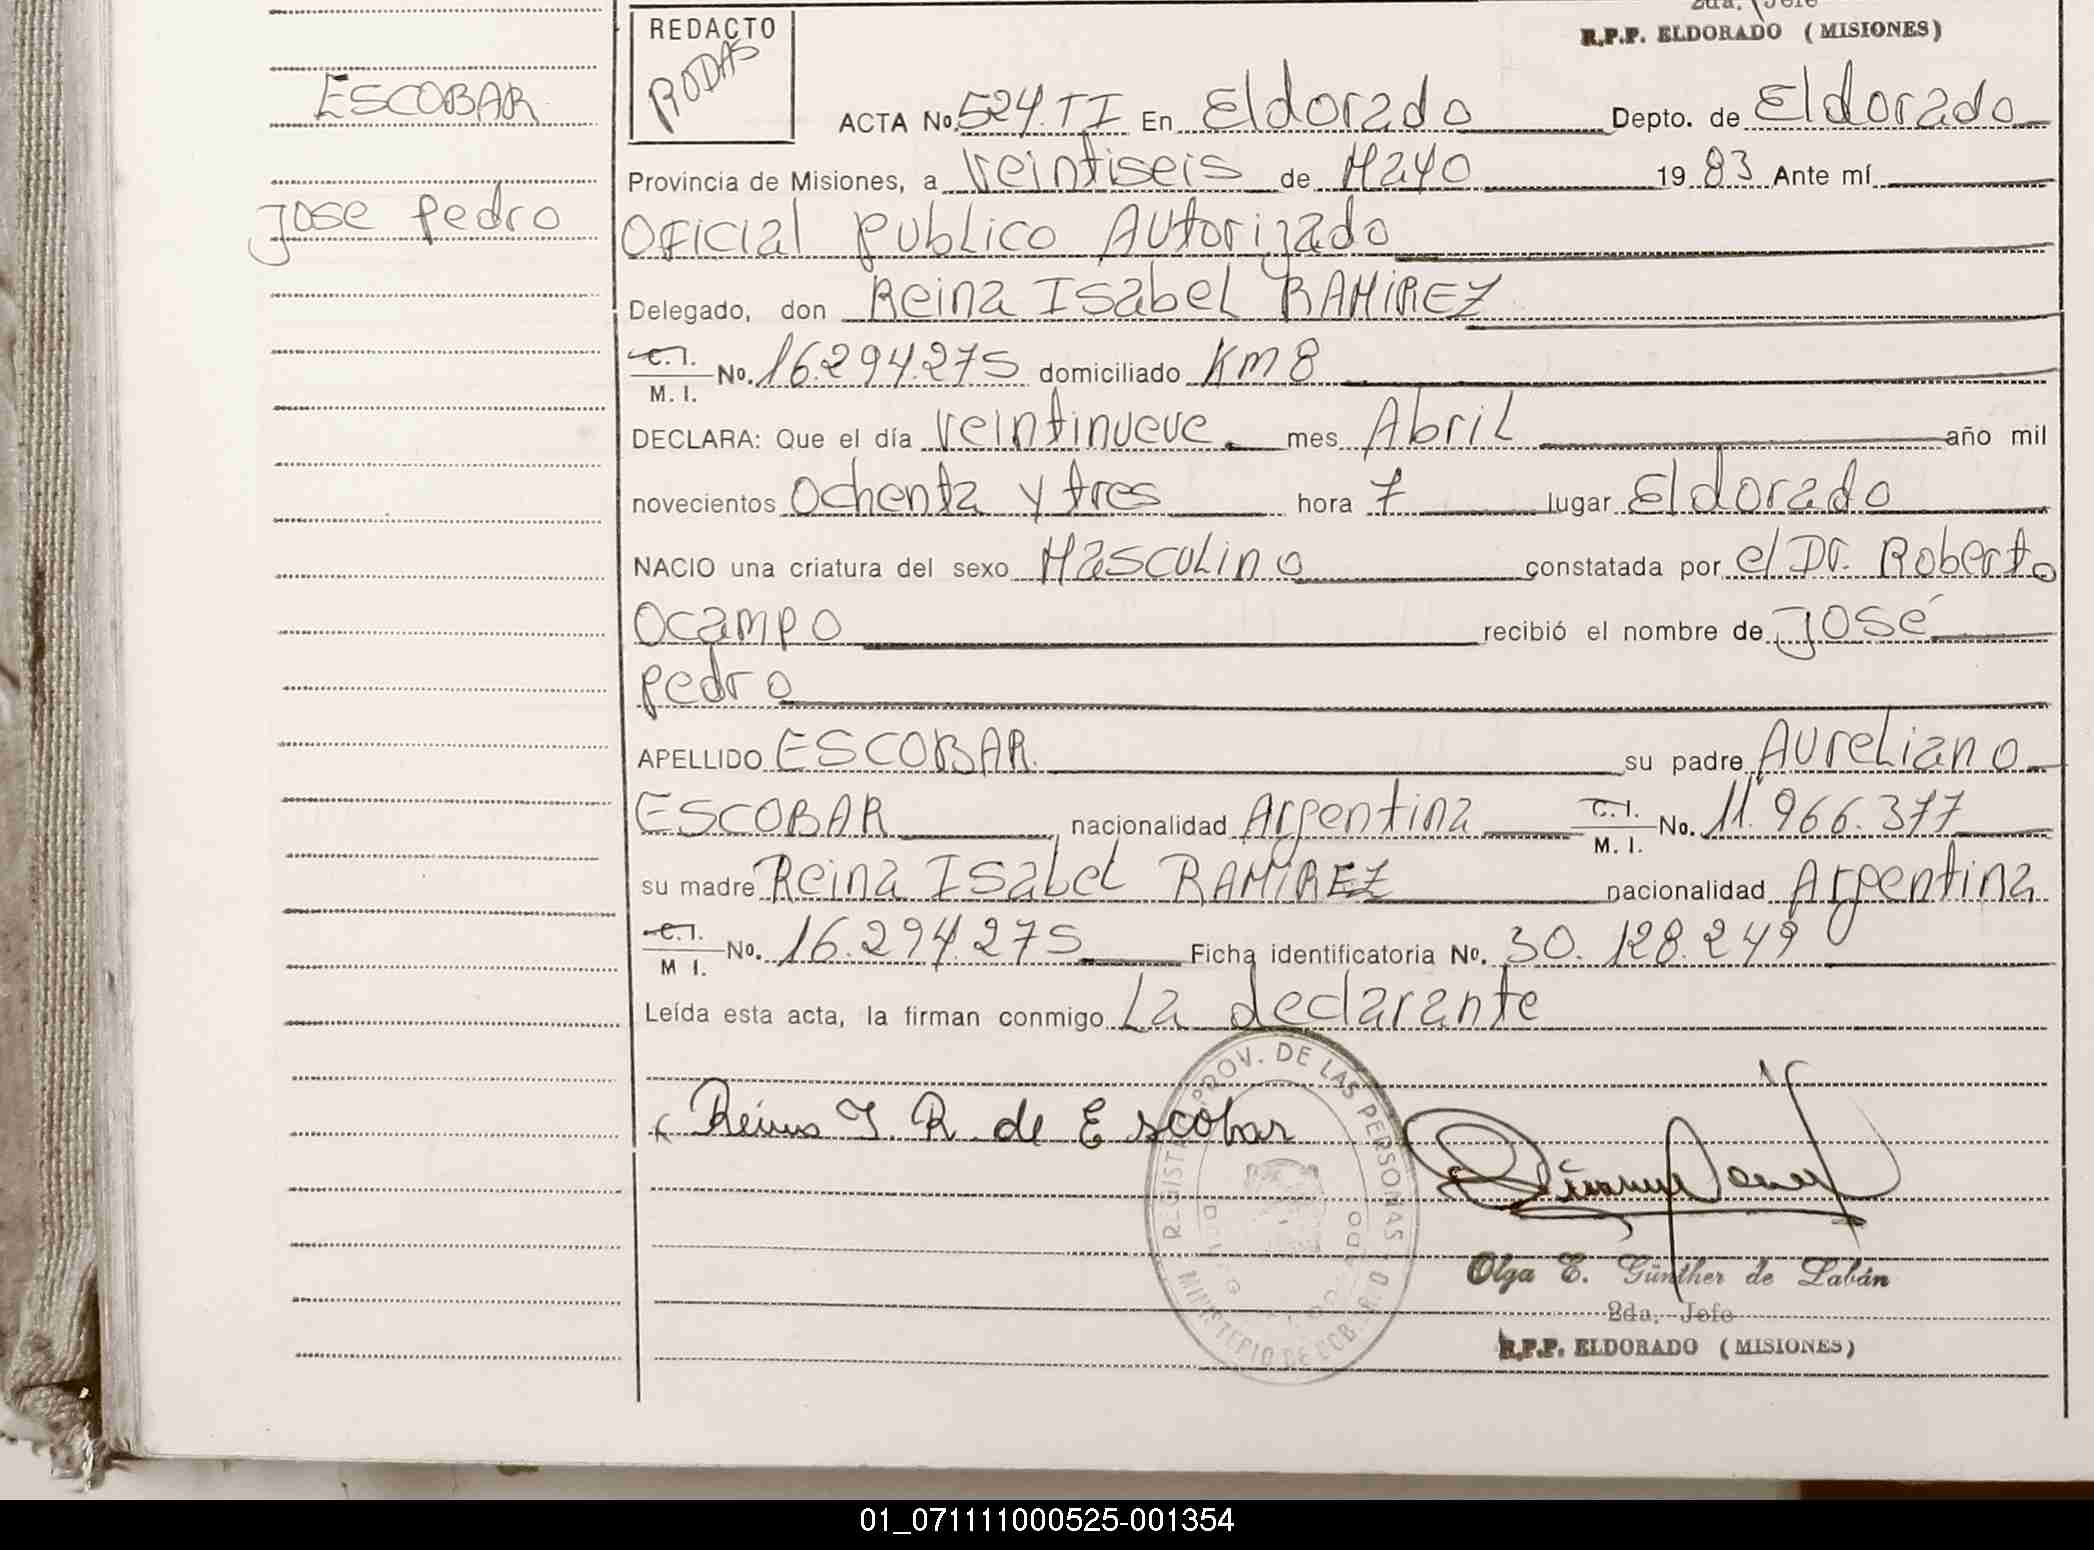 2da. Jefe
R.P.P. ELDORADO (MISIONES)
REDACTO
RODAS
ESCOBAR
Jose pedro
ACTA No. 524.TI En Eldorado Depto. de Eldorado
Provincia de Misiones, a Veintiseis de Mayo 19 83 Ante mí
Oficial publico Autorizado
Delegado, don Reina Isabel RAMIREZ
C.I.
M.I. No. 16.294.275 domiciliado Km 8
DECLARA: Que el día Veintinueve mes Abril año mil
novecientos Ochenta y tres hora 7 lugar Eldorado
NACIO una criatura del sexo Masculino constatada por el Dr. Roberto
Ocampo recibió el nombre de José
pedro
APELLIDO ESCOBAR su padre Aureliano
ESCOBAR nacionalidad Argentina C.I. M.I. No. 11.966.377
su madre Reina Isabel RAMIREZ nacionalidad Argentina
C.I. M I. No. 16.294.275 Ficha identificatoria No. 30.128.249
Leída esta acta, la firman conmigo La declarante
Reina I. R. de Escobar
PROV. DE LAS PERSONAS
MINISTERIO DE GOB.
Olga E. Günther de Labán
2da. Jefe
R.P.P. ELDORADO (MISIONES)
01_071111000525-001354